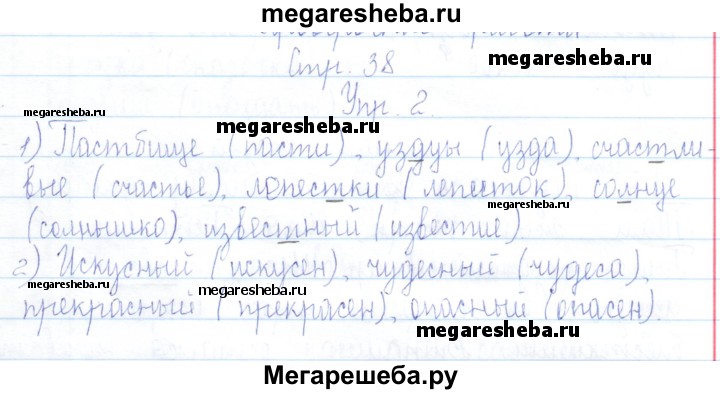 megaresheba.ru
Стр. 38
megaresheba.ru
Упр. 2.
megaresheba.ru
megaresheba.ru
1) Пастбище (пасти), уздцы (узда), счастли-
вые (счастье), лепестки (лепесток), солнце
megaresheba.ru
(солнышко), известный (известие)
2) Искусный (искусен), чудесный (чудеса),
megaresheba.ru
прекрасный (прекрасен), опасный (опасен).
megaresheba.ru
Мегарешеба.ру